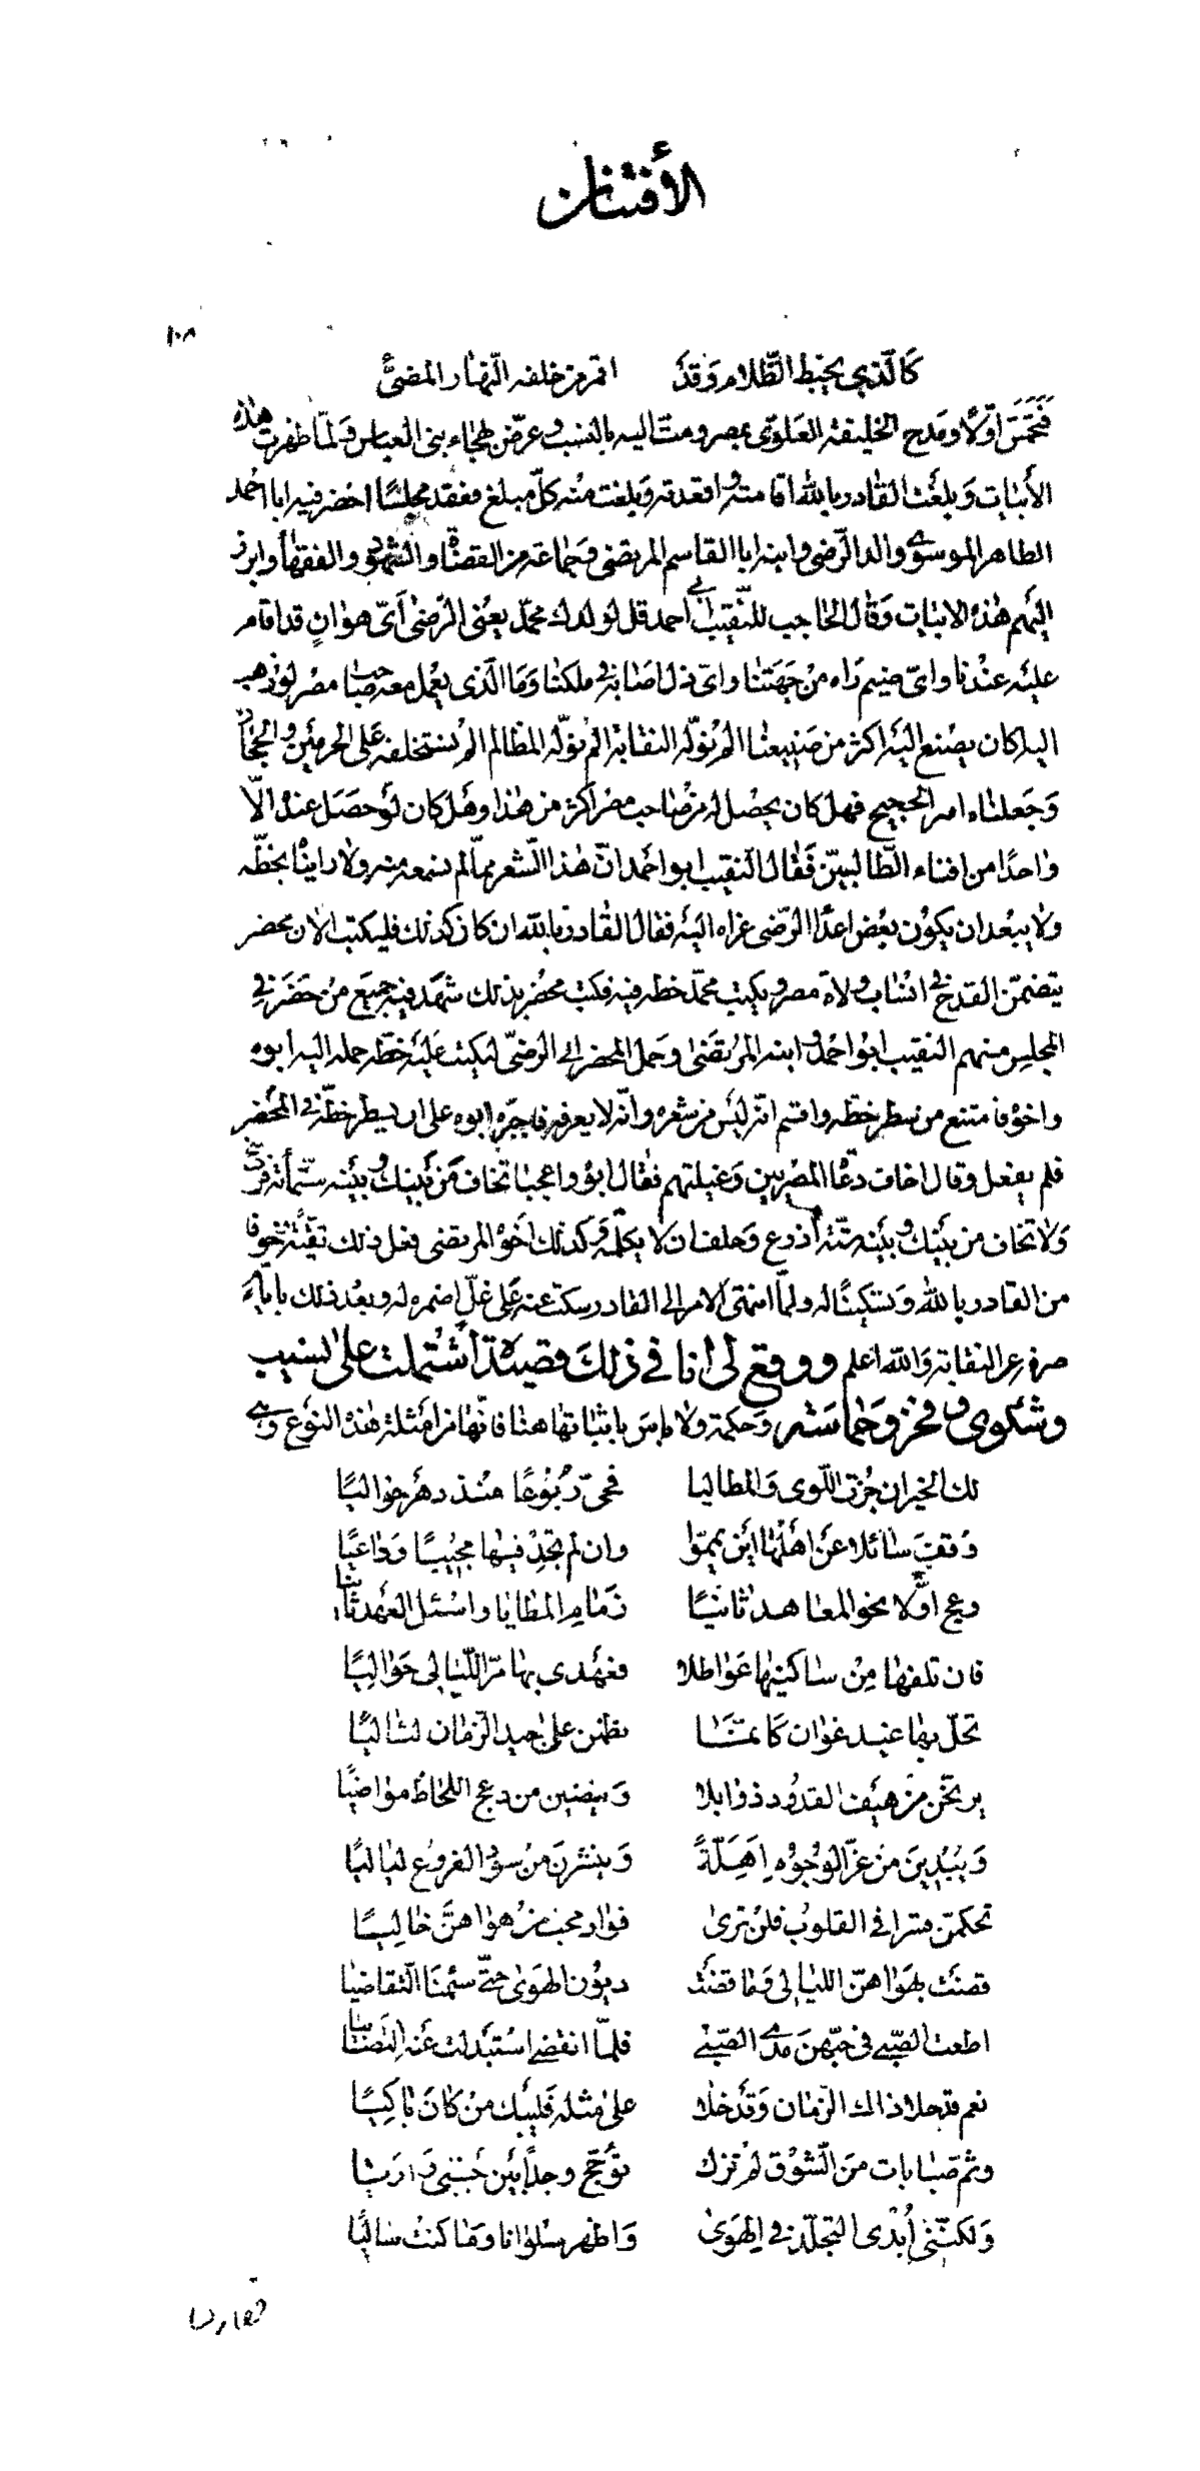 الأفتنان
١٠٨
كَالَّذي يخبط الظّلام وَقدَ اقمر من خلفه النّهار المضئُ
فتحمّس اوّلًا ومَدح الخليفة العَلوىّ بمصر ومتّ اليه بالنسب وعرّض بهجاء بنى العباس وَلمّا ظهرت هذه
الأبيات وَبلغَت القادر بالله اقامته واقعدته وَبلغت منه كلّ مبلغ فعقد مجلسًا احضر فيه ابا احمد
الطاهر الموسوى والد الرّضى وابنه ابا القاسم المرتضى وَجماعة من القضاة والشهود والفقهاء وابرز
اليهم هذه الابيات وَقال الحاجب للنّقيب ابى احمد قل لولدك محمّد يعنى الرّضى اَىّ هوانٍ قد اقام
عليْه عنْدنا واىّ ضيم رَاه منْ جهَتنا واىّ ذل اصَابه فى ملكنا وَمَا الّذى يعْمل معه صَاحب مصْر لو ذهب
اليه اكان يصْنع اليْه اكثر من صَنيعنا الم نُوَلّه النقابة الم نوَلّه المظالم الم نستخلفه عَلى الحرمَين والحجاز
وَجَعلناه امير الحجيج فهل كان يحصْل له من صَاحب مصْر اكثر من هذا وهَل كان لوْ حصَل عندهُ الّا
واحدًا من افناء الطّالبيّن فَقال النّقيب ابو احمد انّ هذا الشّعر ممّا لم نسمعه منه ولا رايناه بخطّه
ولا يبْعد ان يكوُن بعْض اعدَاء الرّضى عزاه اليَه فقال القادر بالله ان كان كذلك فليكتب الان محضر
يتضمّن القدح فى انسَاب ولاة مصر ويكتب محمّد خطه فيه فكتب محْضر بذلك شهَد فيه جميَع منْ حَضَر فى
المجلِس منهم النقيب ابوُ احْمد وابنه المرْتضَى وَحمل المحضر الى الرضىّ ليكتب عَليْه خطّه حمله اليه أبوه
واخوْه فامتنع من سطر خطّه واقسم انّه ليَس من شعره وانّه لا يعرفه فاجبَره ابوه على ان يسطر خطّه فى المحْضر
فلم يفعل وقال اخاف دعَاة المصْريين وَغيلتهم فقال ابوُه واعجبا تخاف مَن بَينك وبيْنه ستّمأة فرسخ
وَلا تخاف من بَينك وَبيْنه ستّة أذرع وَحلف ان لا يكلّمه وَكذلك اخَوْه المرتضى فعل ذلك تقيّةً وخوفًا
من القادر بالله وَتسْكينًا له ولمّا انتهى الامر الى القادر سكت عنه عَلى غلّ اضمره له وبعْد ذلك بايّام
صرفه عن النقابة وَالله اعلم ووقع لى انا فى ذلكَ قصيدة اشتملت على نسيب
وشكوى وفخر وَحماسَة وَحكمة ولا باس باثباتها هنا فانّها من امثلة هذه النوَع وَهى
لك الخير ان جُزت اللّوى وَالمطاليا فحىّ رُبُوعًا منْذ دهْر خواليًا
وَقفْ سَائلا عَن اهلَها اين يممّوا وان لم تجِدْ فيهَا مجُيبًا وَداعيًا
وعج اوّلا نحو المعاهد ثانيًا زمَام المطايا واسْئل العَهد ثانيا
فان تلفهَا مِنْ سَاكنيهَا عَواطلا فعهْدى بها مرّ الليَالى حَواليًا
تحلّ بها عيْد غوان كَانّمَا نظمن على جيد الزّمان لئاليًا
يرنّحن منْ هيَف القدُود ذوابلا وَينضين من دعج اللحاظ مواضيًا
وَيبُدِينَ منَ غرّ الوُجُوْه اَهَلّةً وَينشرنَ منْ سوُد الفروُع لياليًا
تحكمّن سَرا فى القلوبُ فلنْ ترىٰ فؤاد محب من هواهنَّ خاليًا
قضَت بهوَاهنّ الليَالى وَمَا قضَت ديوُن الهَوىٰ حتّى سئمنَا التقاضيا
اطعت الصّبى فى حبّهنَ مَدى الصّبى فلمّا انقضى استبَدلت عَنه التصَابيا
نعم قد حلا ذاك الزّمان وَقدَ خلا على مثله فَليَبك منْ كانَ بَاكيًا
وثم صَبابات منَ الشوْق لمْ تزل تؤَجّج وجدًا بيَن جَنبَى وَاريا
وَلكنّنى أبْدى التجلّد فى الهَوىٰ وَاظهر سلوانا وَمَا كنتُ سَاليًا